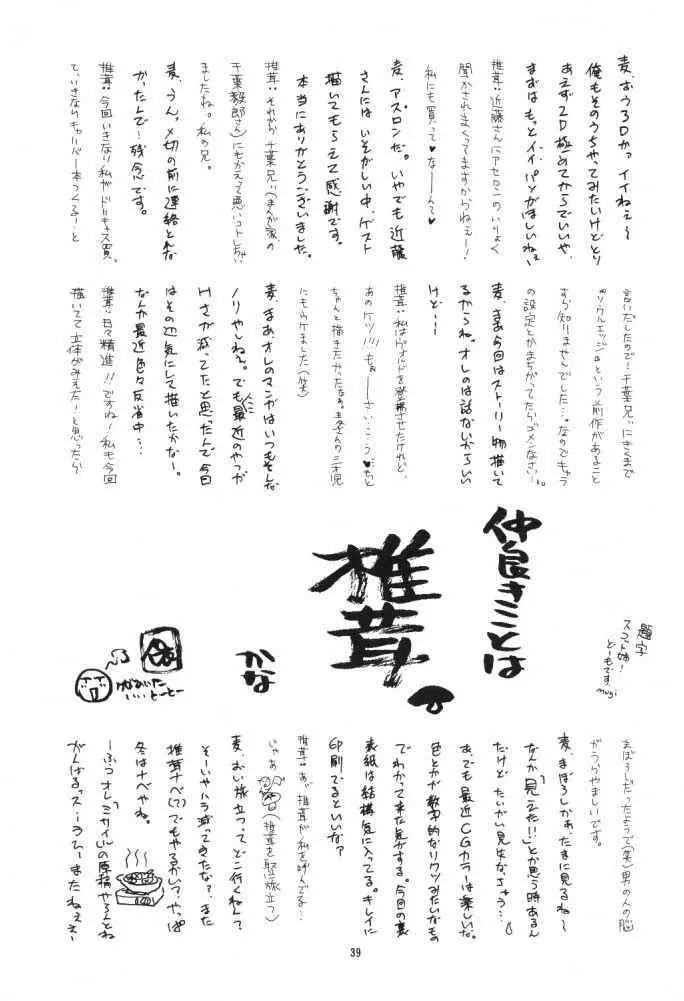 麦:おう3Dかっイイねぇ〜
俺もそのうちやってみたいけどとり
あえず2D極めてからでいいや。
まずはもっとイイパソがほしいねぇ
椎茸:近藤さんにアセロンのいりょく
聞かされまくってますからねぇー!
私にも買って♥な——んて♥
麦:アスロンだ。いやでも近藤
さんにはいそがしい中、ゲスト
描いてもらえて感謝です。
本当にありがとうございました。
椎茸:それから千葉兄ぃ(まんが家の
千葉毅郎さん)にもかえて悪いコトしちゃい
ましたね。私の兄。
麦:うん。〆切の前に連絡とれな
かったんで…残念です。
椎茸:今回いきなり私がドリキャス買っ
て、いきなりキャリバー本つくる!と
言いだしたので…千葉兄ぃにきくまで
『ソウルエッジ』という前作があること
すら知りませんでした…。なのでキャラ
の設定とかまちがってたらゴメンなさい…。
麦:まあ今回はストーリー物描いて
るからね。オレのは話ないからいい
けど…
椎茸:私はヴォルドを登場させたけれど、
あのケツ!!!もぉ——さいこう…♥もと
ちゃんと描きたかったなぁ。
にもウケました(笑)
麦:まあ、オレのマンガはいつもそんな
ノリやしねぇ。でも最近のやつが
Hさが減ってたと思ったんで今回
はその辺気にして描いたかなー。
なんか最近色々反省中…
椎茸:日々精進!!ですね!私も今回
描いてて立体がみえた!と思ったら
仲良きことは
椎茸。
かな
題字
スコット姉!
どーもです。
mugi
まぼろしだったようで(笑)男の人の脳
がうらやましいです。
麦:まぼろしかあ。たまに見るね〜
なんか「見えた!!」とか思う時あるん
だけど、たいがい見失なっちゃう…
あ、でも最近CGカラーは楽しいな。
色とかが数学的なリクツみたいなもの
でわかって来た気がする。今回の裏
表紙は結構気に入ってる。キレイに
印刷でるといいな?
椎茸:あ゛、椎茸が私を呼んでる…
じゃあ (椎茸を堅に旅立つ)
麦:おい旅立つってどこ行くねん?
そーいやハラ減ってきたな?また
椎茸ナベ(?)でもやるかい?やっぱ
冬はナベやね。
ーふっオレ、ミサイルの原稿やらんとね
がんばるっス…うひー またねぇぇ〜
39